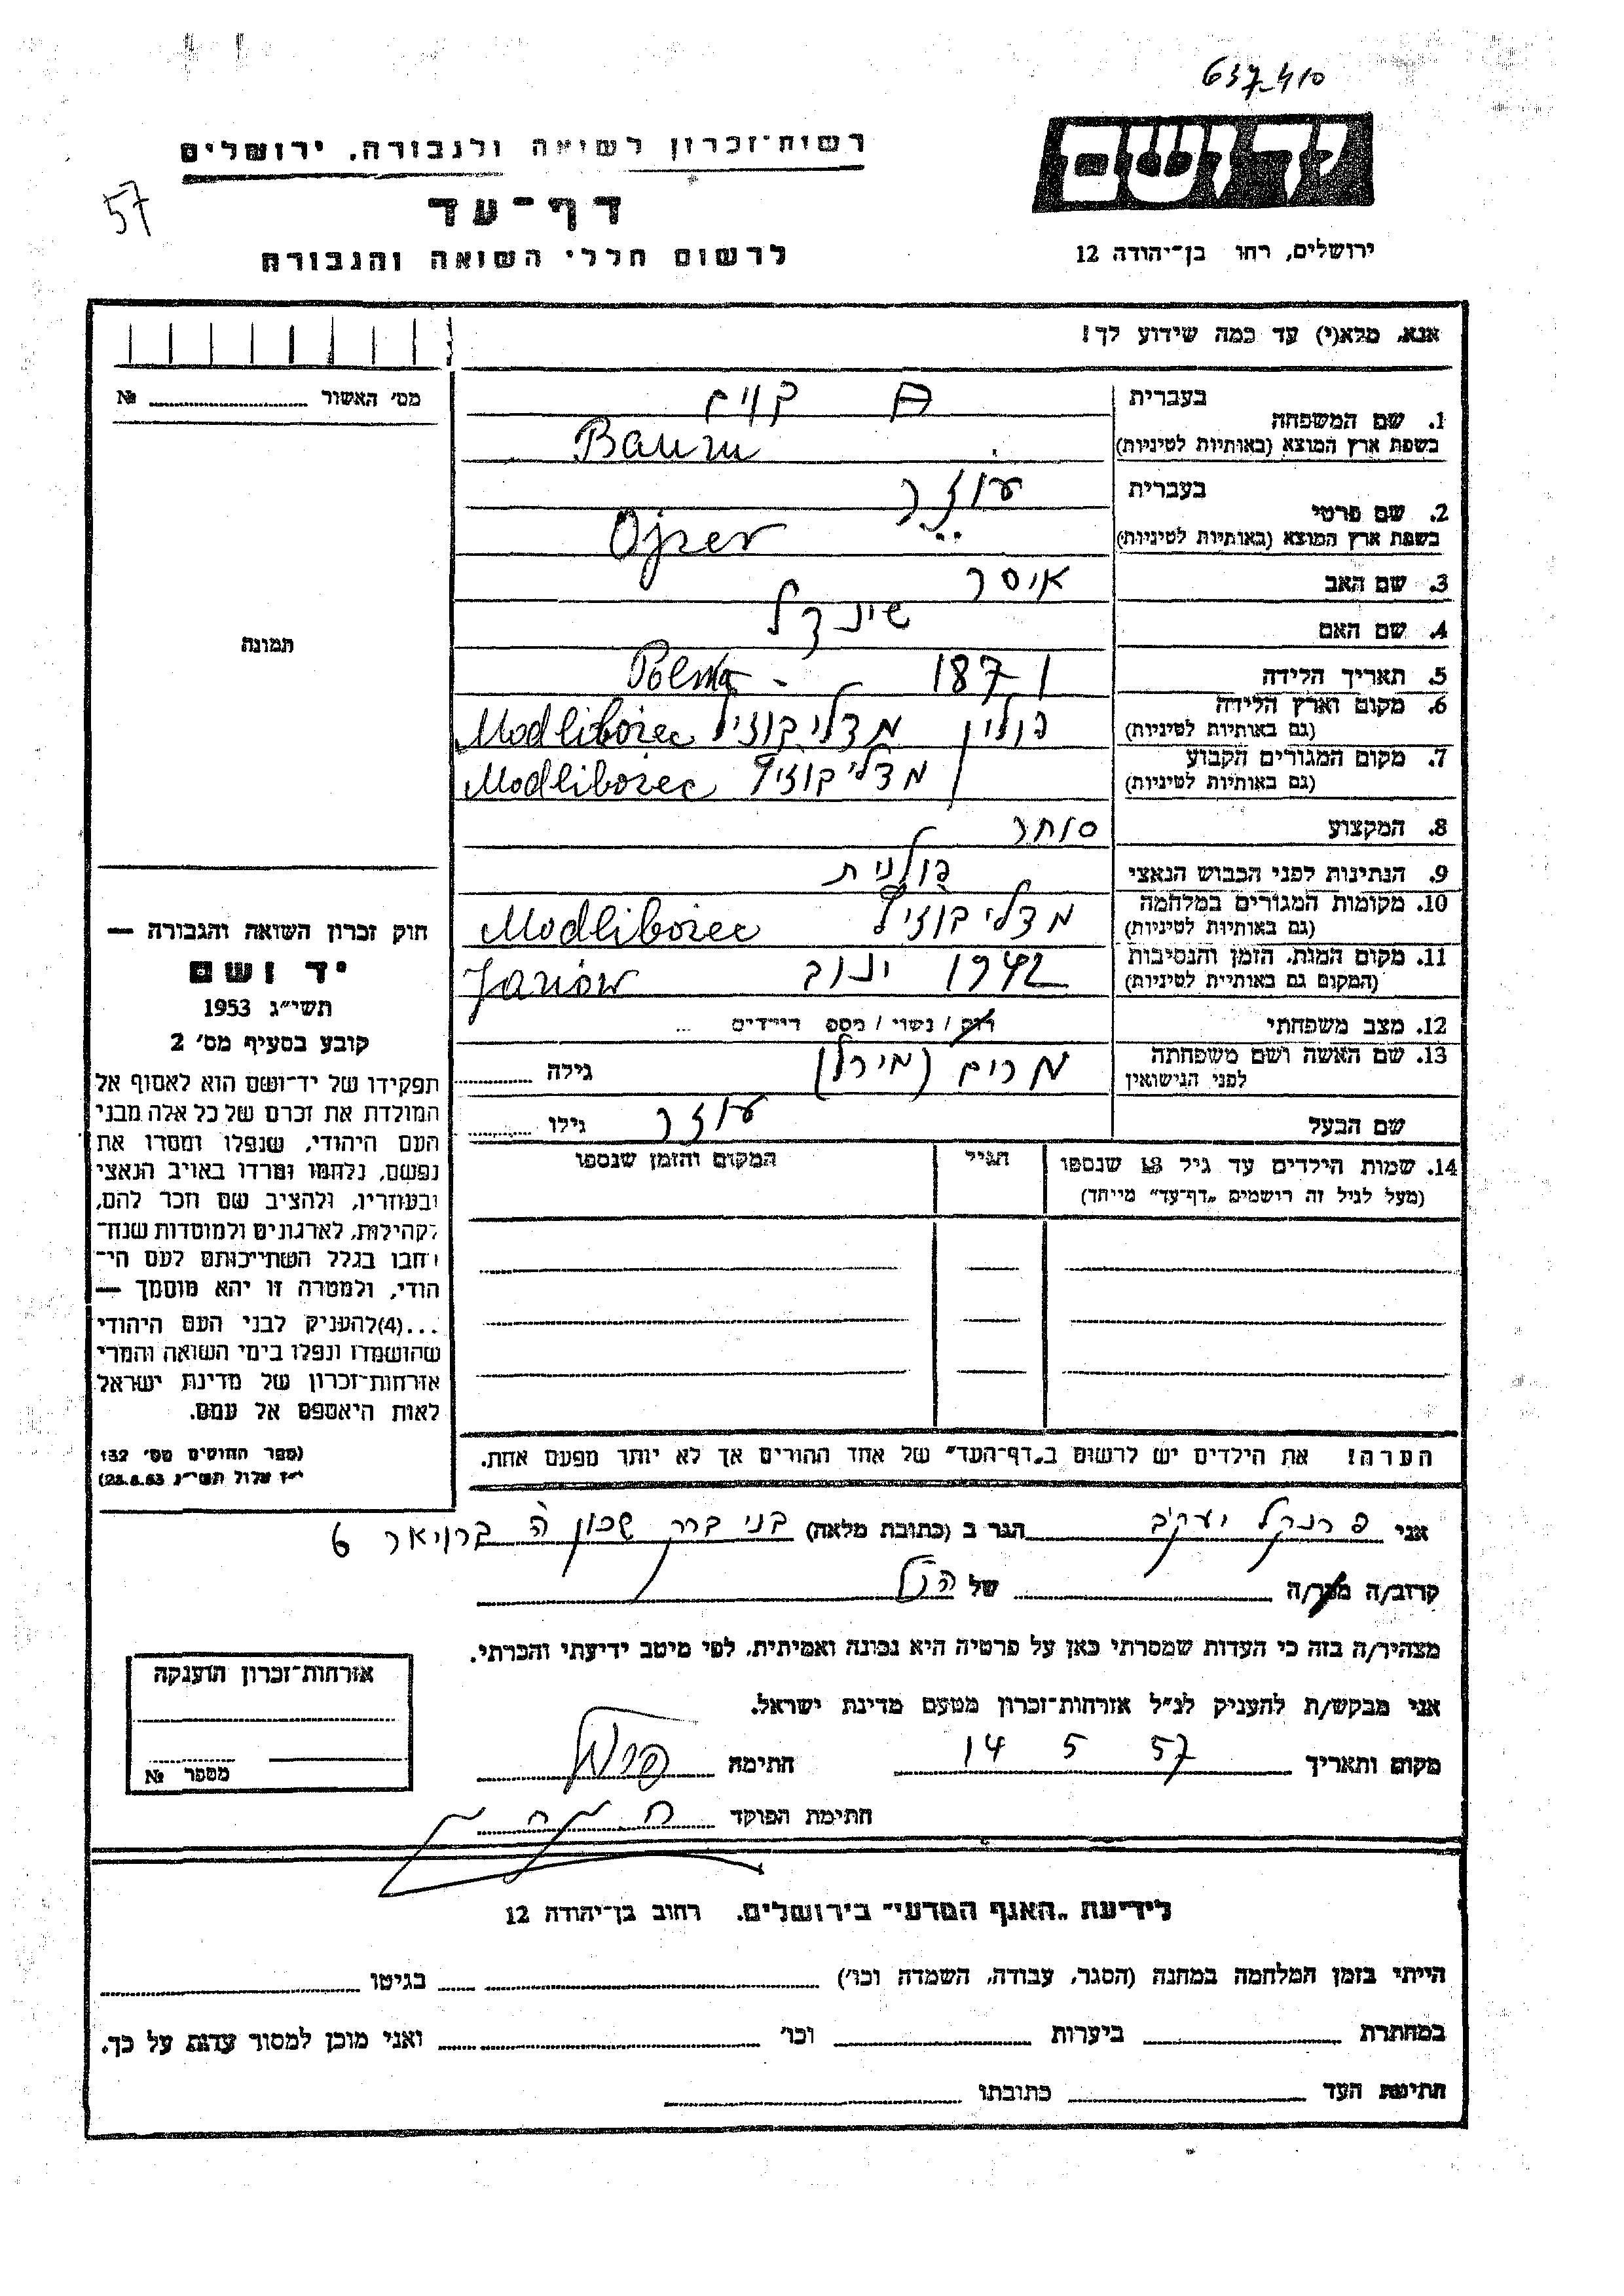 637-410
יד ושם
רשות־זכרון לשואה ולגבורה, ירושלים
57
דף־עד
ירושלים, רחו בן־יהודה 12
לרשום חללי השואה והגבורה
אנא, מלא(י) עד כמה שידוע לך!
מס׳ האשור №
תמונה
1. שם המשפחה בעברית בוים
בשפת ארץ המוצא (באותיות לטיניות) Baum
2. שם פרטי בעברית עוזר
בשפת ארץ המוצא (באותיות לטיניות) Ojzer
3. שם האב איסר
4. שם האם שינדל
5. תאריך הלידה 1871 - Polska
6. מקום וארץ הלידה (גם באותיות לטיניות) פולין מדליבוזיץ Modliborzec
7. מקום המגורים הקבוע (גם באותיות לטיניות) מדליבוזיץ Modliborzec
8. המקצוע סוחר
9. הנתינות לפני הכבוש הנאצי פולנית
10. מקומות המגורים במלחמה (גם באותיות לטיניות) מדליבוזיץ Modliborzec
11. מקום המות, הזמן והנסיבות (המקום גם באותיות לטיניות) 1942 ינוב Janów
12. מצב משפחתי רוק / נשוי / מספ הילדים ...
13. שם האשה ושם משפחתה לפני הנישואין מרים (מירל) גילה
שם הבעל עוזר גילו
14. שמות הילדים עד גיל 18 שנספו הגיל המקום והזמן שנספו
(מעל לגיל זה רושמים „דף־עד״ מיוחד)
חוק זכרון השואה והגבורה —
יד ושם
תשי״ג 1953
קובע בסעיף מס׳ 2
תפקידו של יד־ושם הוא לאסוף אל
המולדת את זכרם של כל אלה מבני
העם היהודי, שנפלו ומסרו את
נפשם, נלחמו ומרדו באויב הנאצי
ובעוזריו, ולהציב שם וזכר להם,
לקהילות, לארגונים ולמוסדות שנח־
רבו בגלל השתייכותם לעם הי־
הודי, ולמטרה זו יהא מוסמך —
...(4)להעניק לבני העם היהודי
שהושמדו ונפלו בימי השואה והמרי
אזרחות־זכרון של מדינת ישראל
לאות היאספם אל עמם.
(ספר החוקים מס׳ 132
י״ז אלול תשי״ג 28.8.53)
הערה! את הילדים יש לרשום ב„דף־העד״ של אחד ההורים אך לא יותר מפעם אחת.
אני פרנקל יעקב הגר ב (כתובת מלאה) בני ברק שכון ה ברויאר 6
קרוב/ה מכר/ה של הנ״ל
מצהיר/ה בזה כי העדות שמסרתי כאן על פרטיה היא נכונה ואמיתית, לפי מיטב ידיעתי והכרתי.
אני מבקש/ת להעניק לנ״ל אזרחות־זכרון מטעם מדינת ישראל.
מקום ותאריך 14 5 57 חתימה
חתימת הפוקד
אזרחות־זכרון הוענקה
מספר №
לידיעת „האגף המדעי״ בירושלים, רחוב בן־יהודה 12
הייתי בזמן המלחמה במחנה (הסגר, עבודה, השמדה וכו׳) בגיטו
במחתרת ביערות וכו׳ ואני מוכן למסור עדות על כך.
חתימת העד כתובתו